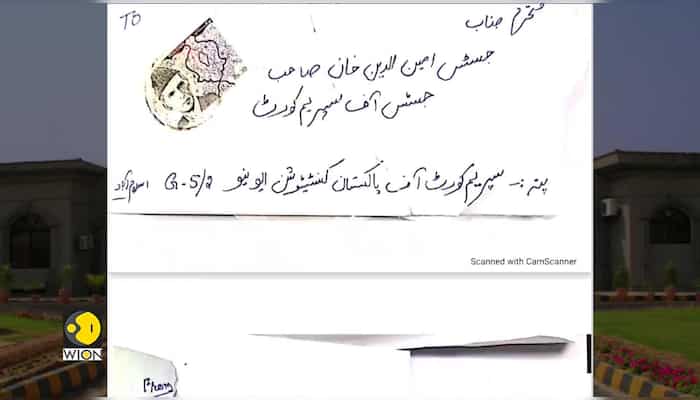 TO
محترم جناب
جسٹس امین الدین خان صاحب
جسٹس آف سپریم کورٹ
پتہ :- سپریم کورٹ آف پاکستان کنسٹیٹوشن ایونیو G-5/2 اسلام آباد
Scanned with CamScanner
WION
From